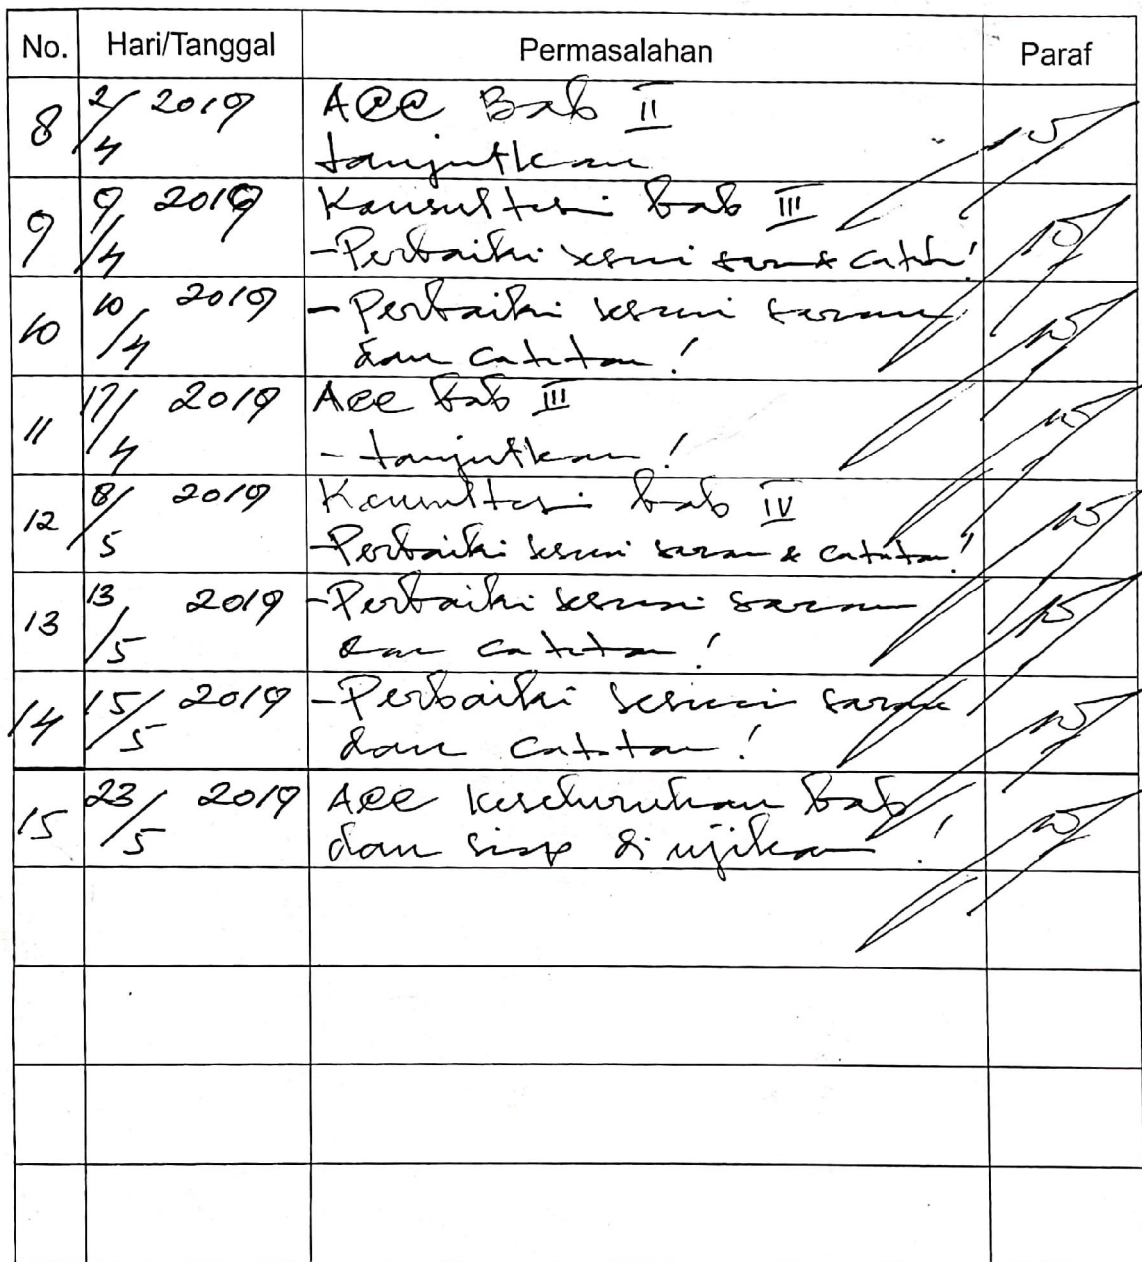 No. Hari/Tanggal Permasalahan Paraf
8 2/4 2019 Acc Bab II
Lanjutkan
9 9/4 2019 Konsultasi bab III
- Perbaiki sesuai saran & catatan!
10 10/4 2019 - Perbaiki sesuai saran
dan catatan!
11 17/4 2019 Acc bab III
- Lanjutkan!
12 8/5 2019 Konsultasi bab IV
- Perbaiki sesuai saran & catatan!
13 13/5 2019 - Perbaiki sesuai saran
dan catatan!
14 15/5 2019 - Perbaiki sesuai saran
dan catatan!
15 23/5 2019 Acc keseluruhan bab
dan siap di ujikan!